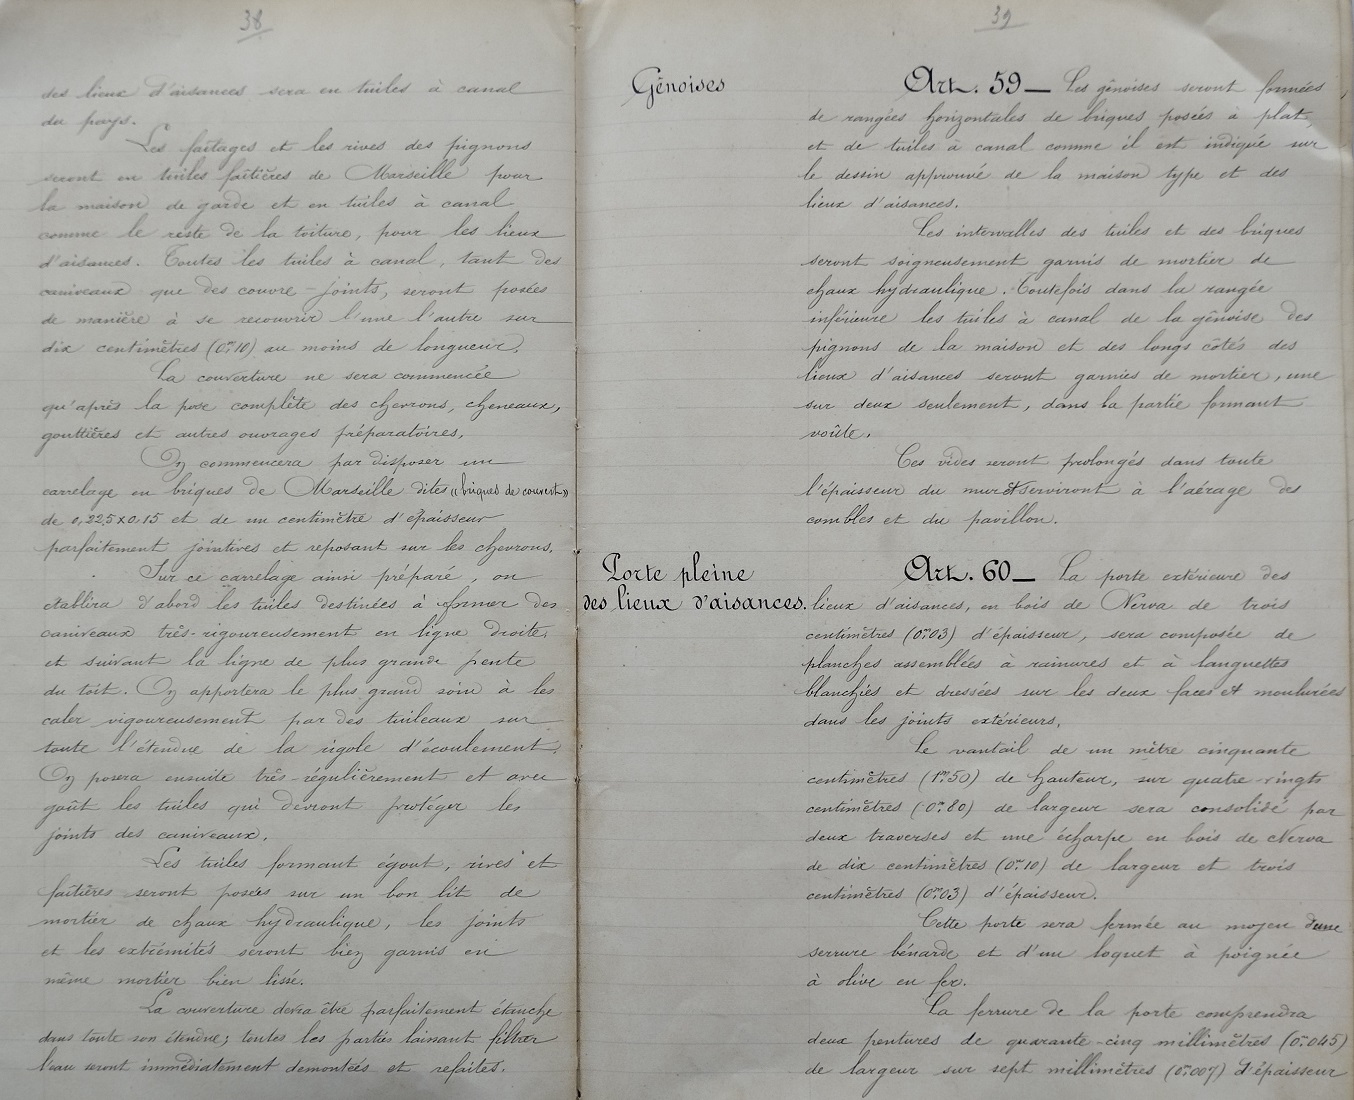 38
des lieux d'aisances sera en tuiles à canal
du pays.
Les faîtages et les rives des pignons
seront en tuiles faîtières de Marseille pour
la maison de garde et en tuiles à canal
comme le reste de la toiture, pour les lieux
d'aisances. Toutes les tuiles à canal, tant des
caniveaux que des couvre-joints, seront posées
de manière à se recouvrir l'une l'autre sur
dix centimètres (0m10) au moins de longueur.
La couverture ne sera commencée
qu'après la pose complète des chevrons, cheneaux,
gouttières et autres ouvrages préparatoires.
On commencera par disposer un
carrelage en briques de Marseille dites « briques de couvert »
de 0,225x0.15 et de un centimètre d'épaisseur
parfaitement jointives et reposant sur les chevrons.
Sur ce carrelage ainsi préparé, on
établira d'abord les tuiles destinées à former des
caniveaux très-rigoureusement en ligne droite,
et suivant la ligne de plus grande pente
du toit. On apportera le plus grand soin à les
caler vigoureusement par des tuileaux sur
toute l'étendue de la rigole d'écoulement.
On posera ensuite très-régulièrement et avec
goût les tuiles qui devront protéger les
joints des caniveaux.
Les tuiles formant égout, rives et
faîtières seront posées sur un bon lit de
mortier de chaux hydraulique, les joints
et les extrémités seront bien garnis en
même mortier bien lissé.
La couverture devra être parfaitement étanche
dans toute son étendue; toutes les parties laissant filtrer
l'eau seront immédiatement démontées et refaites.
39
Gênoises
Art. 59 — Les gênoises seront formées
de rangées horizontales de briques posées à plat,
et de tuiles à canal comme il est indiqué sur
le dessin approuvé de la maison type et des
lieux d'aisances.
Les intervalles des tuiles et des briques
seront soigneusement garnis de mortier de
chaux hydraulique. Toutefois dans la rangée
inférieure les tuiles à canal de la gênoise des
pignons de la maison et des longs côtés des
lieux d'aisances seront garnies de mortier, une
sur deux seulement, dans la partie formant
voûte.
Ces vides seront prolongés dans toute
l'épaisseur du mur et serviront à l'aérage des
combles et du pavillon.
Porte pleine
des lieux d'aisances.
Art. 60 — La porte extérieure des
lieux d'aisances, en bois de Nerva de trois
centimètres (0m03) d'épaisseur, sera composée de
planches assemblées à rainures et à languettes
blanchies et dressées sur les deux faces et moulurées
dans les joints extérieurs.
Le vantail de un mètre cinquante
centimètres (1m50) de hauteur, sur quatre-vingts
centimètres (0m80) de largeur sera consolidé par
deux traverses et une écharpe en bois de Nerva
de dix centimètres (0m10) de largeur et trois
centimètres (0m03) d'épaisseur.
Cette porte sera fermée au moyen d'une
serrure bénarde et d'un loquet à poignée
à olive en fer.
La ferrure de la porte comprendra
deux pentures de quarante-cinq millimètres (0m045)
de largeur sur sept millimètres (0m007) d'épaisseur